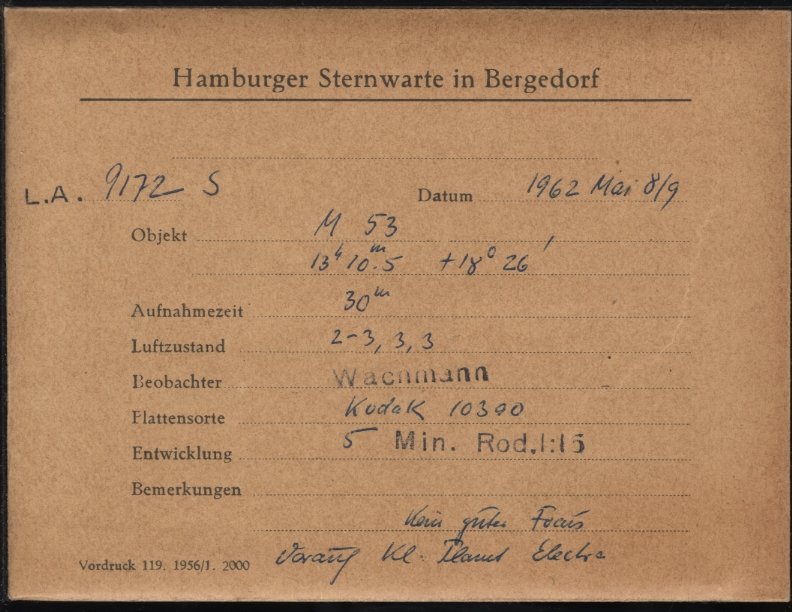 Hamburger Sternwarte in Bergedorf
L.A. 9172 S Datum 1962 Mai 8/9
Objekt M 53
13h 10m.5 +18° 26'
Aufnahmezeit 30m
Luftzustand 2-3, 3, 3
Beobachter Wachmann
Plattensorte Kodak 103a0
Entwicklung 5 Min. Rod.1:15
Bemerkungen
Kein guter Focus
Vordruck 119. 1956/1. 2000 Darauf Kl. Planet Electra